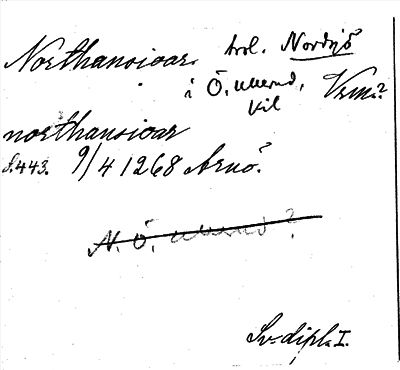 Northansioar. trol. Nordsjö
i Ö. Ullerud, Vrm.?
Kil
northansioar
S. 443. 9/4 1268 Arnö.
N. Ö. Ullerud?
Sv. dipl. I.